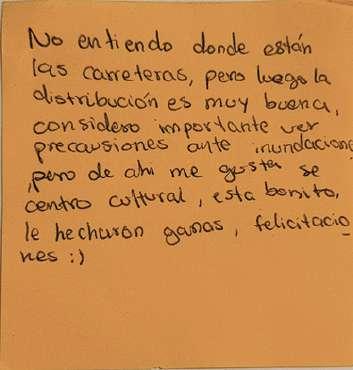 No entiendo donde están
las carreteras, pero luego la
distribución es muy buena,
considero importante ver
precausiones ante inundacione
,pero de ahi me gusta se
centro cultural, esta bonito,
le hecharon ganas, felicitacio
nes :)